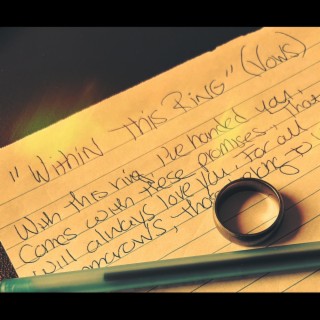 "Within This Ring" (Vows)
With this ring I've handed you,
Comes with these promises, that
Will always love you, for all
tomorrows, that